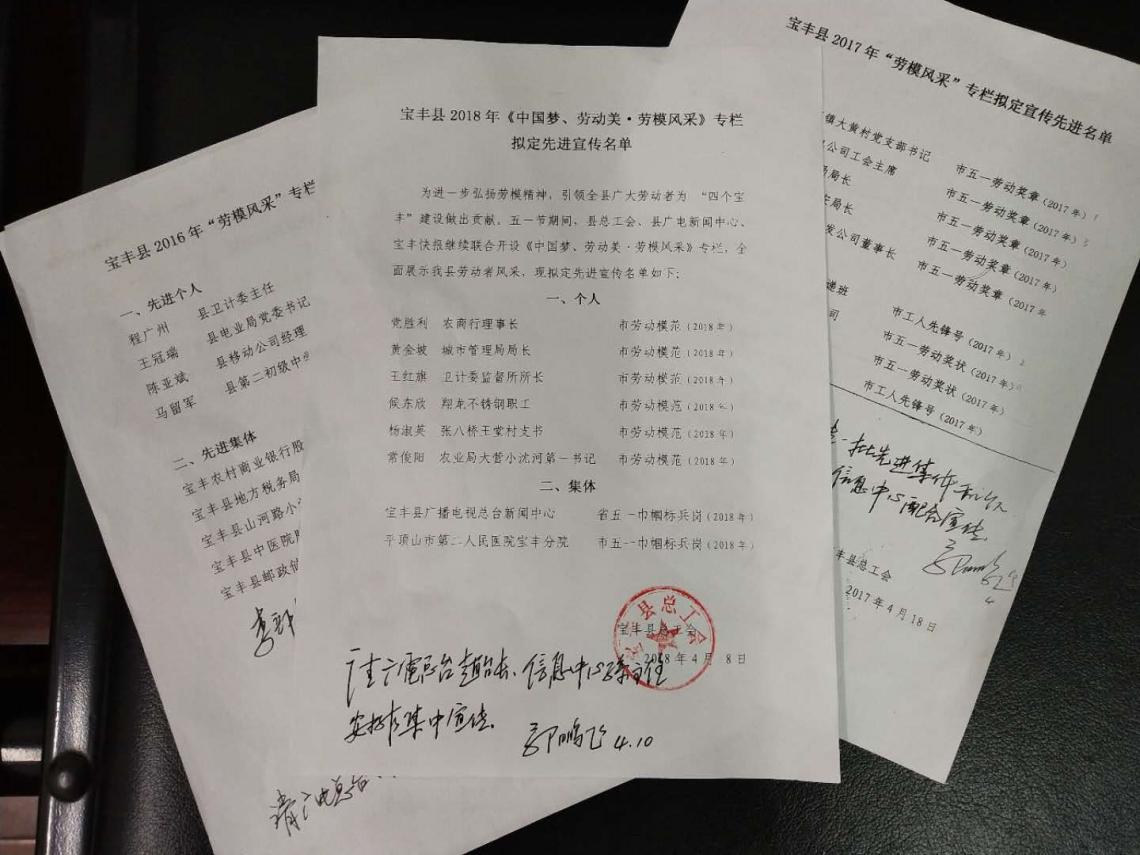 宝丰县 2018 年《中国梦、劳动美·劳模风采》专栏
拟定先进宣传名单
为进一步弘扬劳模精神，引领全县广大劳动者为 “四个宝
丰”建设做出贡献。五一节期间、县总工会、县广电新闻中心、
宝丰快报继续联合开设《中国梦、劳动美·劳模风采》专栏，全
面展示我县劳动者风采，现拟定先进宣传名单如下：
一、个人
党胜利 农商行理事长 市劳动模范（2018 年）
黄金坡 城市管理局局长 市劳动模范（2018 年）
王红旗 卫计委监督所所长 市劳动模范（2018 年）
候东欣 翔龙不锈钢职工 市劳动模范（2018 年）
杨淑英 张八桥王堂村支书 市劳动模范（2018 年）
常俊阳 农业局大营小沈河第一书记 市劳动模范（2018 年）
二、集体
宝丰县广播电视总台新闻中心 省五一巾帼标兵岗（2018 年）
平顶山市第二人民医院宝丰分院 市五一巾帼标兵岗（2018 年）
宝丰县总工会
2018 年 4 月 8 日
县总工会
信息中心
主任
安排集中宣传
郭鹏飞 4.10
宝丰县 2016 年“劳模风采”专栏
一、先进个人
程广州 县卫计委主任
王冠瑞 县电业局党委书记
陈亚斌 县移动公司经理
马留军 县第二初级中
二、先进集体
宝丰农村商业银行股
宝丰县地方税务局
宝丰县山河路小
宝丰县中医院
宝丰县邮政储
宝丰县 2017 年“劳模风采”专栏拟定宣传先进名单
镇大黄村党支部书记 市五一劳动奖章（2017 年）
公司工会主席 市五一劳动奖章（2017 年）
局长 市五一劳动奖章（2017 年）
局长 市五一劳动奖章（2017 年）
发公司董事长 市五一劳动奖章（2017 年
递班 市工人先锋号（2017 年）
司 市五一劳动奖状（2017 年）
市五一劳动奖状（2017 年）
市工人先锋号（2017 年）
信息中心配合宣传
丰县总工会
2017 年 4 月 18 日